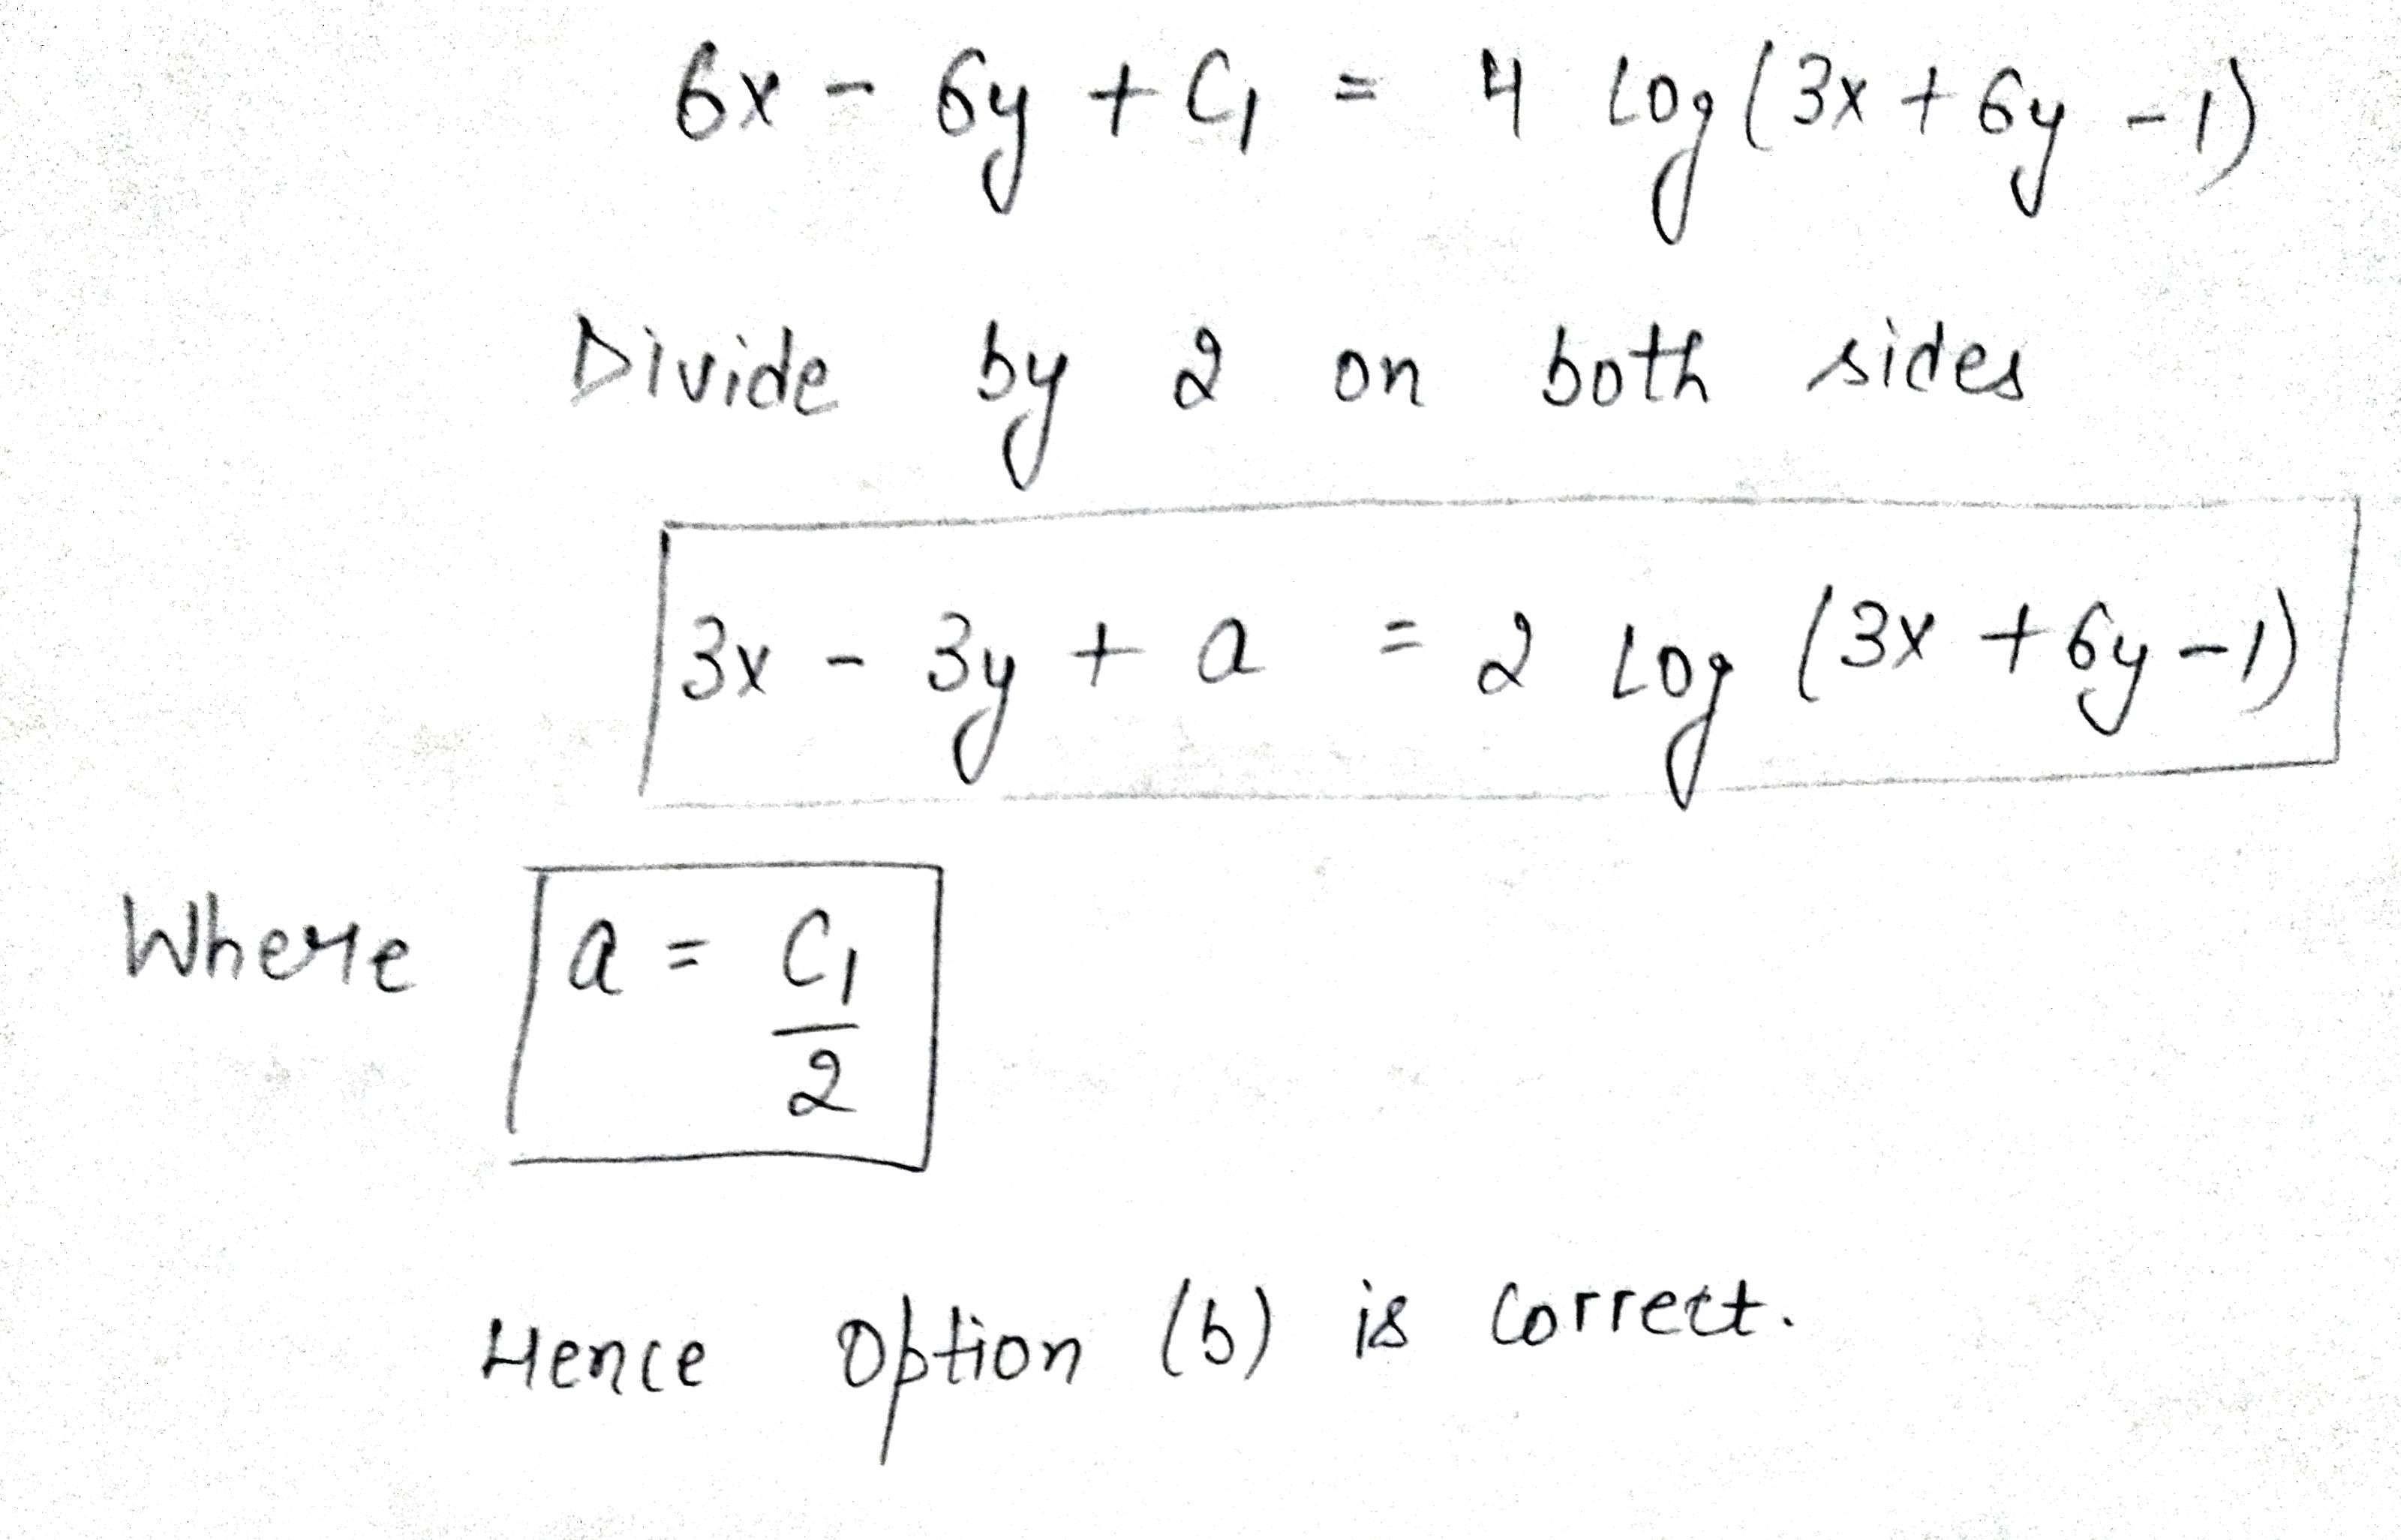 6x - 6y + C₁ = 4 log(3x + 6y - 1)
Divide by 2 on both sides
3x - 3y + a = 2 log (3x + 6y - 1)
Where a = C₁/2
Hence option (b) is correct.